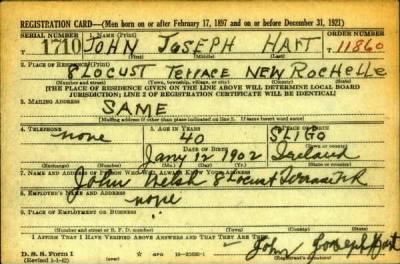 REGISTRATION CARD—(Men born on or after February 17, 1897 and on or before December 31, 1921)
SERIAL NUMBER 1. NAME (Print) ORDER NUMBER
1710 JOHN JOSEPH HART 11860
2. PLACE OF RESIDENCE (Print)
8 LOCUST TERRACE NEW ROCHELLE
(Number and street) (Town, township, village, or city) (County) (State)
[THE PLACE OF RESIDENCE GIVEN ON THE LINE ABOVE WILL DETERMINE LOCAL BOARD
JURISDICTION; LINE 2 OF REGISTRATION CERTIFICATE WILL BE IDENTICAL]
3. MAILING ADDRESS
SAME
[Mailing address if other than place indicated on line 2. If same insert word same]
4. TELEPHONE 5. AGE IN YEARS 6. PLACE OF BIRTH
none 40 SLIGO
DATE OF BIRTH (Town or county)
Jany 12 1902 Ireland
(Exchange) (Number) (Mo.) (Day) (Yr.) (State or country)
7. NAME AND ADDRESS OF PERSON WHO WILL ALWAYS KNOW YOUR ADDRESS
John Welsh 8 Locust Terrace N R
8. EMPLOYER'S NAME AND ADDRESS
none
9. PLACE OF EMPLOYMENT OR BUSINESS
(Number and street or R. F. D. number) (Town) (County) (State)
I AFFIRM THAT I HAVE VERIFIED ABOVE ANSWERS AND THAT THEY ARE TRUE.
John Joseph Hart
D. S. S. Form 1
(Revised 1-1-42) (Registrant's signature)